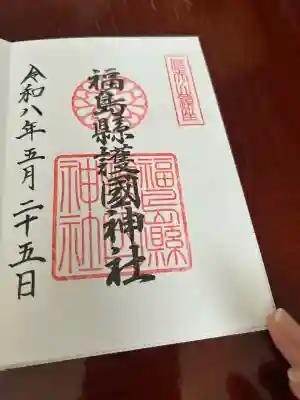 福島縣護國神社
令和八年五月二十五日
福島縣
神社